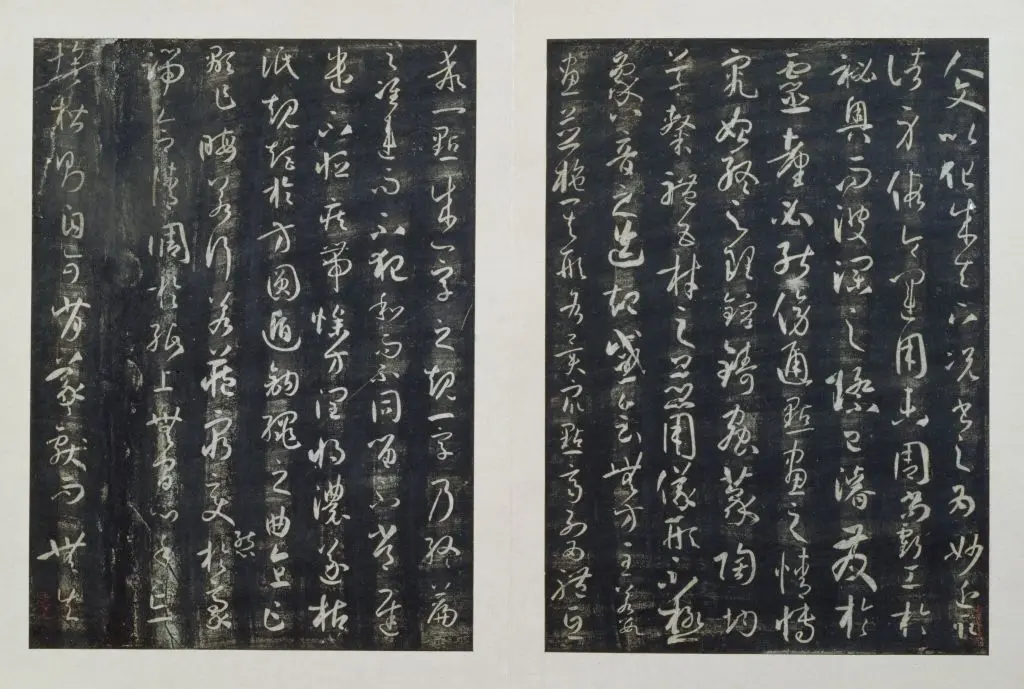 人文以化成天下況書之為妙近取
諸身假令運用未周尚虧工於
祕奧而波瀾之際已濬發於
靈臺必能傍通點畫之情博
究始終之理鎔鑄蟲篆陶均
草隸體五材之並用儀形不極
象八音之迭起感會無方至若數
畫並施其形各異眾點齊列為體互
乖一點成一字之規一字乃終篇
之准違而不犯和而不同留不常遲
遣不恒疾帶燥方潤將濃遂枯
泯規矩於方圓遁鉤繩之曲直乍
顯乍晦若行若藏窮變態於毫
端合情調於紙上無間心手忘
懷楷則自可背羲獻而無失